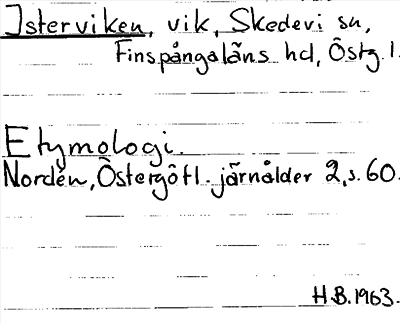 Isterviken, vik, Skedevi sn,
Finspångaläns hd, Östg. l.
Etymologi.
Nordén, Östergötl. järnålder 2, s. 60.
H.B. 1963.